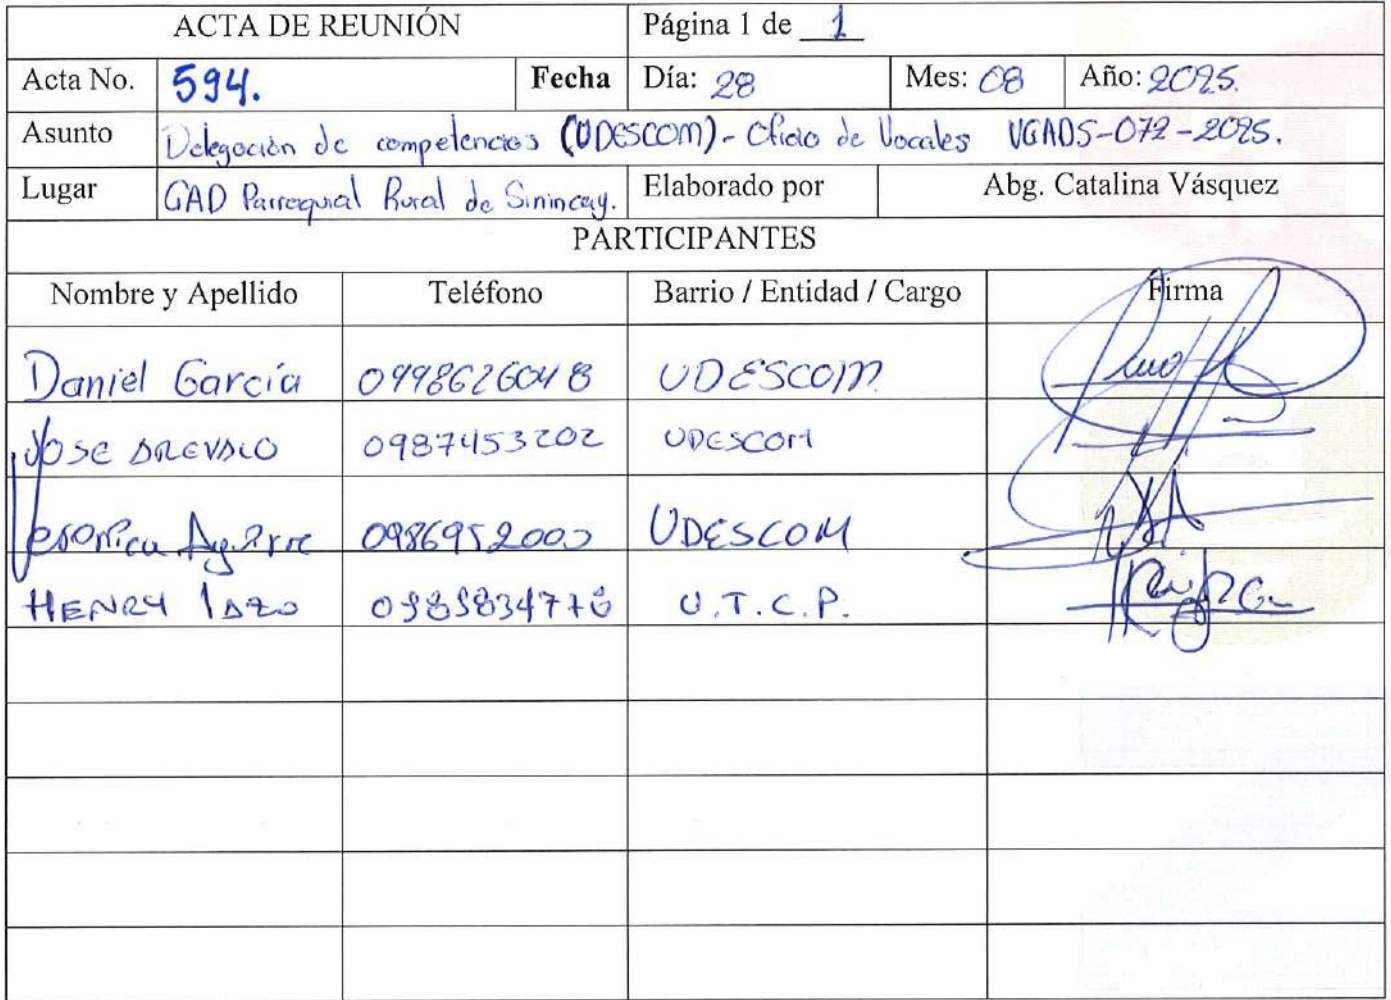 ACTA DE REUNIÓN Página 1 de 1
Acta No. 594. Fecha Día: 28 Mes: 08 Año: 2025.
Asunto Delegación de competencias (UDESCOM) - Oficio de Vocales VGADS-072-2025.
Lugar GAD Parroquial Rural de Sinincay. Elaborado por Abg. Catalina Vásquez
PARTICIPANTES
Nombre y Apellido Teléfono Barrio / Entidad / Cargo Firma
Daniel García 0998626048 UDESCOM
JOSE AREVALO 0987453202 UDESCOM
Veronica Aguirre UDESCOM
HENRY U.T.C.P.